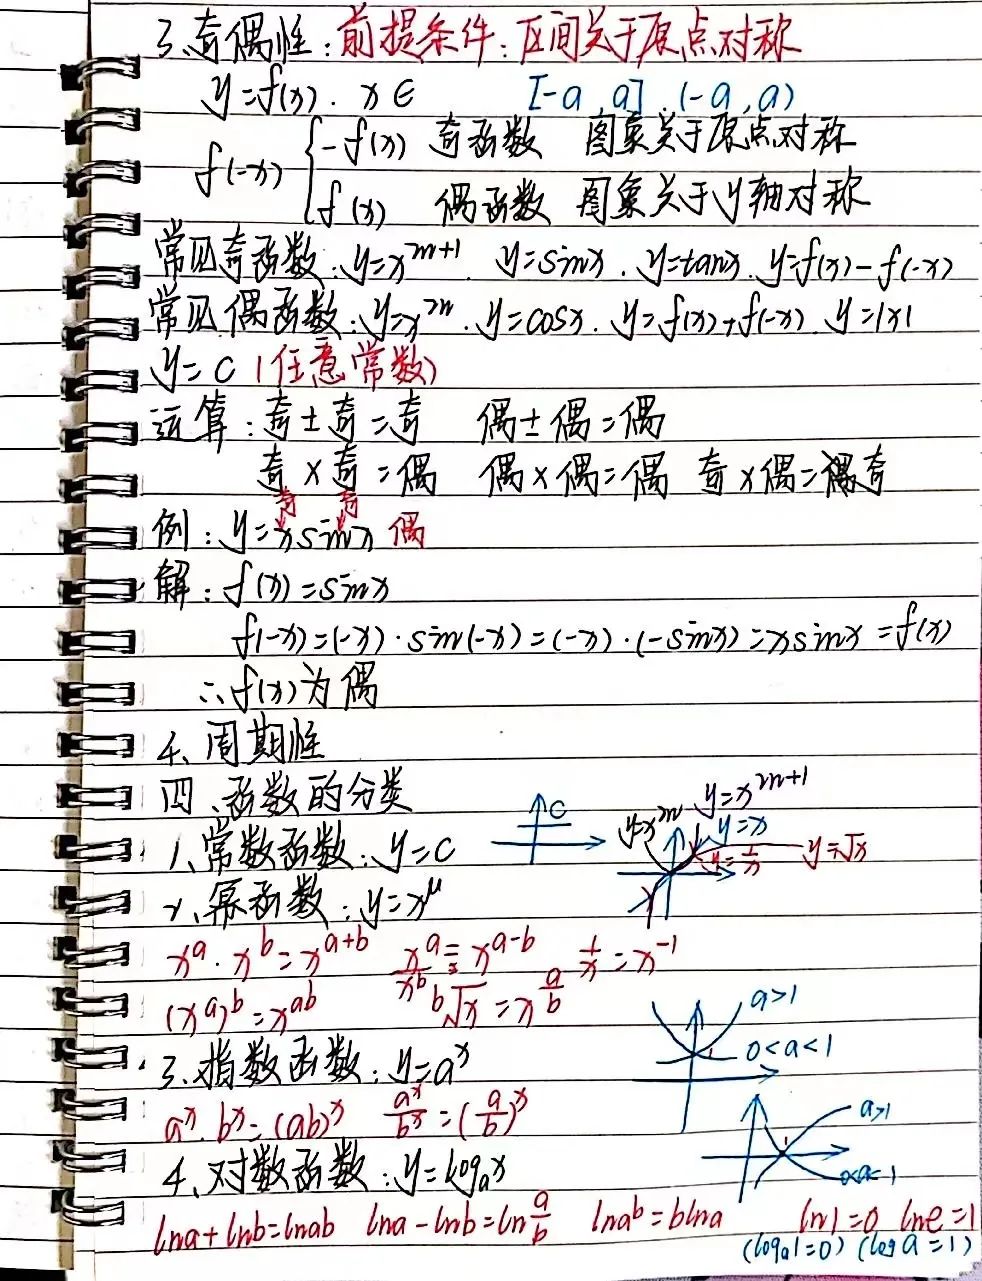 3、奇偶性：前提条件：区间关于原点对称
y=f(x)．x∈ [-a,a]．(-a,a)
f(-x) { -f(x) 奇函数 图象关于原点对称
f(x) 偶函数 图象关于y轴对称
常见奇函数：y=x^{2n+1}．y=sinx．y=tanx．y=f(x)-f(-x)
常见偶函数：y=x^{2n}．y=cosx．y=f(x)+f(-x)．y=|x|
y=C (任意常数)
运算：奇±奇=奇 偶±偶=偶
奇×奇=偶 偶×偶=偶 奇×偶=奇
奇 奇
例：y=xsinx 偶
解：f(x)=sinx
f(-x)=(-x)·sin(-x)=(-x)·(-sinx)=xsinx=f(x)
∴f(x)为偶
4、周期性
四、函数的分类
C y=x^{2n} y=x^{2n+1} y=x y=1/x y=√x
1、常数函数：y=C
2、幂函数：y=x^μ
x^a·x^b=x^{a+b} x^a/x^b=x^{a-b} 1/x=x^{-1}
(x^a)^b=x^{ab} ^b√x=x^{a/b}
a>1
0<a<1
3、指数函数：y=a^x
a^x·b^x=(ab)^x a^x/b^x=(a/b)^x
a>1
1
0<a<1
4、对数函数：y=log_a x
lna+lnb=lnab lna-lnb=ln a/b lna^b=blna ln1=0 lne=1
(log_a 1=0) (log a=1)